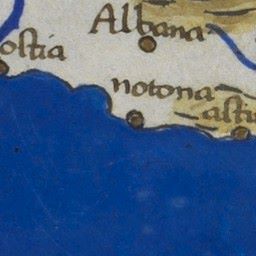 Albana
ostia
notona
astu